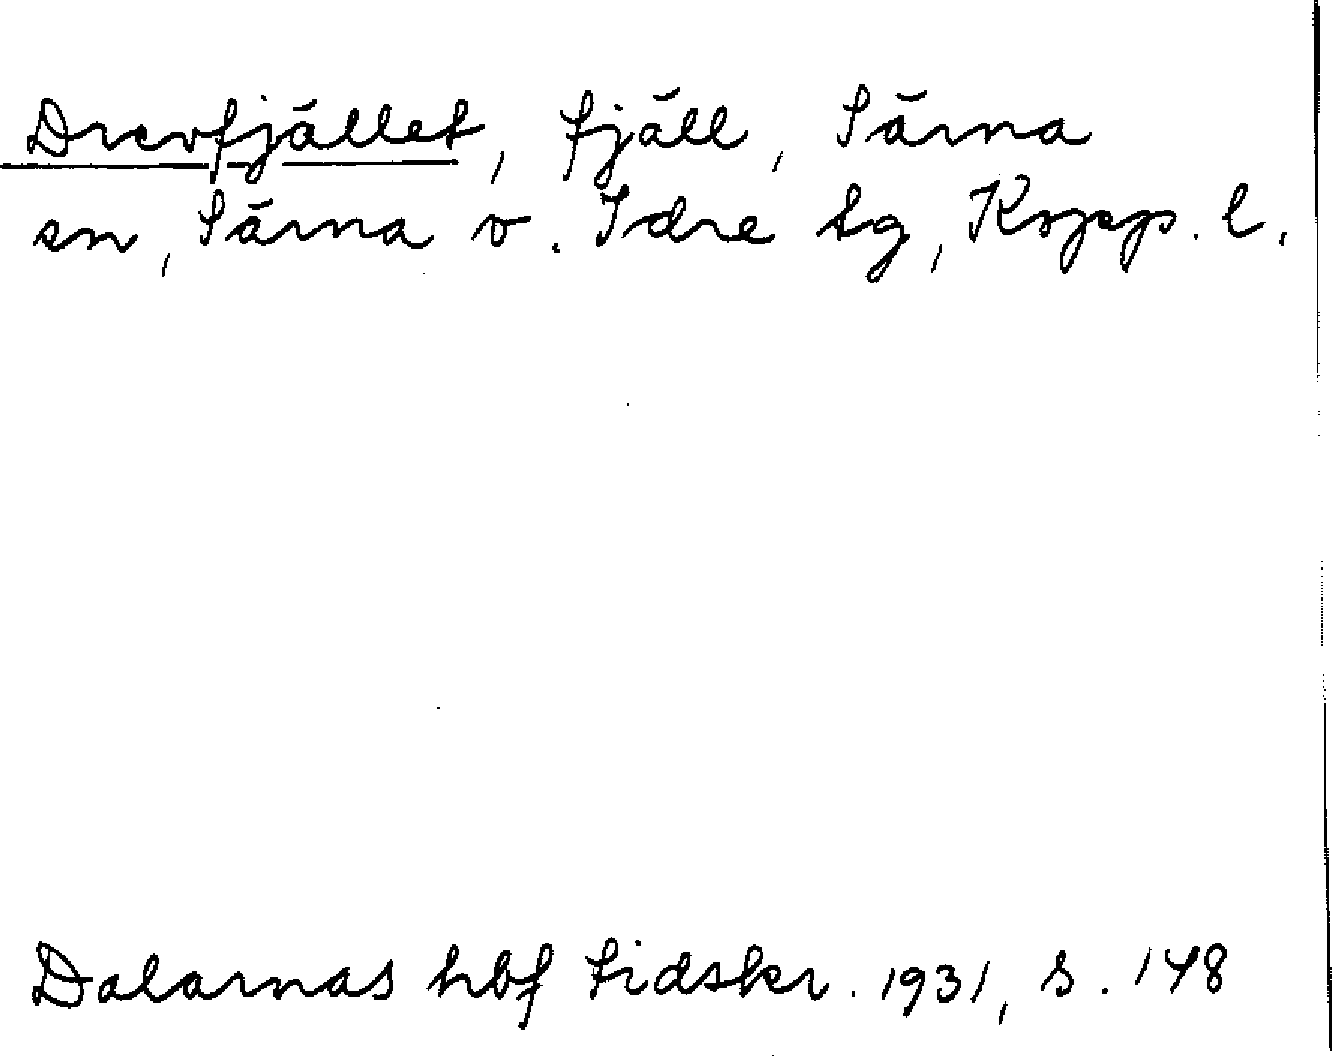 Drevfjället, fjäll, Särna
sn, Särna o. Idre tg, Kopp. l.
Dalarnas hbf tidskr. 1931, s. 148